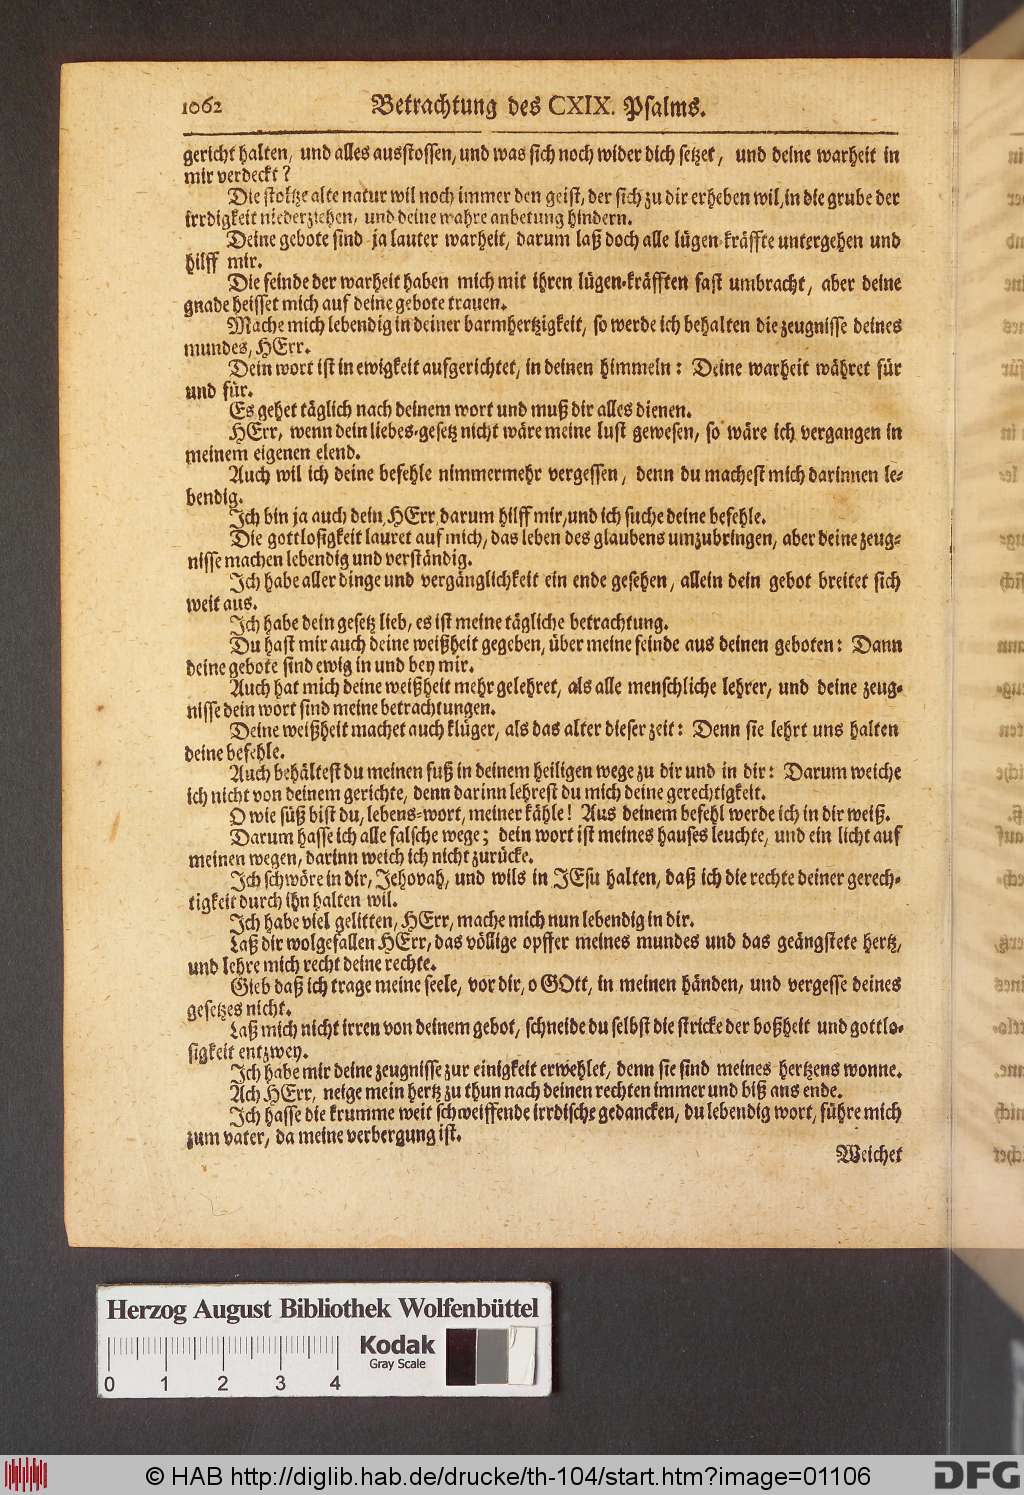 1062 Betrachtung des CXIX. Psalms.
gericht halten, und alles ausstossen, und was sich noch wider dich setzet, und deine warheit in
mir verdeckt?
Die stoltze alte natur wil noch immer den geist, der sich zu dir erheben wil, in die grube der
irrdigkeit niederziehen, und deine wahre anbetung hindern.
Deine gebote sind ja lauter warheit, darum laß doch alle lügen-kräffte untergehen und
hilff mir.
Die feinde der warheit haben mich mit ihren lügen-kräfften fast umbracht, aber deine
gnade heisset mich auf deine gebote trauen.
Mache mich lebendig in deiner barmhertzigkeit, so werde ich behalten die zeugnisse deines
mundes, HErr.
Dein wort ist in ewigkeit aufgerichtet, in deinen himmeln: Deine warheit währet für
und für.
Es gehet täglich nach deinem wort und muß dir alles dienen.
HErr, wenn dein liebes-gesetz nicht wäre meine lust gewesen, so wäre ich vergangen in
meinem eigenen elend.
Auch wil ich deine befehle nimmermehr vergessen, denn du machest mich darinnen le-
bendig.
Ich bin ja auch dein, HErr, darum hilff mir, und ich suche deine befehle.
Die gottlosigkeit lauret auf mich, das leben des glaubens umzubringen, aber deine zeug-
nisse machen lebendig und verständig.
Ich habe aller dinge und vergänglichkeit ein ende gesehen, allein dein gebot breitet sich
weit aus.
Ich habe dein gesetz lieb, es ist meine tägliche betrachtung.
Du hast mir auch deine weißheit gegeben, über meine feinde aus deinen geboten: Dann
deine gebote sind ewig in und bey mir.
Auch hat mich deine weißheit mehr gelehret, als alle menschliche lehrer, und deine zeug-
nisse dein wort sind meine betrachtungen.
Deine weißheit machet auch klüger, als das alter dieser zeit: Denn sie lehrt uns halten
deine befehle.
Auch behältest du meinen fuß in deinem heiligen wege zu dir und in dir: Darum weiche
ich nicht von deinem gerichte, denn darinn lehrest du mich deine gerechtigkeit.
O wie süß bist du, lebens-wort, meiner kähle! Aus deinem befehl werde ich in dir weiß.
Darum hasse ich alle falsche wege; dein wort ist meines hauses leuchte, und ein licht auf
meinen wegen, darinn weich ich nicht zurücke.
Ich schwöre in dir, Jehovah, und wils in JEsu halten, daß ich die rechte deiner gerech-
tigkeit durch ihn halten wil.
Ich habe viel gelitten, HErr, mache mich nun lebendig in dir.
Laß dir wolgefallen HErr, das völlige opffer meines mundes und das geängstete hertz,
und lehre mich recht deine rechte.
Gieb daß ich trage meine seele, vor dir, o GOtt, in meinen händen, und vergesse deines
gesetzes nicht.
Laß mich nicht irren von deinem gebot, schneide du selbst die stricke der boßheit und gottlo-
sigkeit entzwey.
Ich habe mir deine zeugnisse zur einigkeit erwehlet, denn sie sind meines hertzens wonne.
Ach HErr, neige mein hertz zu thun nach deinen rechten immer und biß ans ende.
Ich hasse die krumme weit schweiffende irrdische gedancken, du lebendig wort, führe mich
zum vater, da meine verbergung ist.
Weichet
Herzog August Bibliothek Wolfenbüttel
Kodak
Gray Scale
0 1 2 3 4
© HAB http://diglib.hab.de/drucke/th-104/start.htm?image=01106
DFG